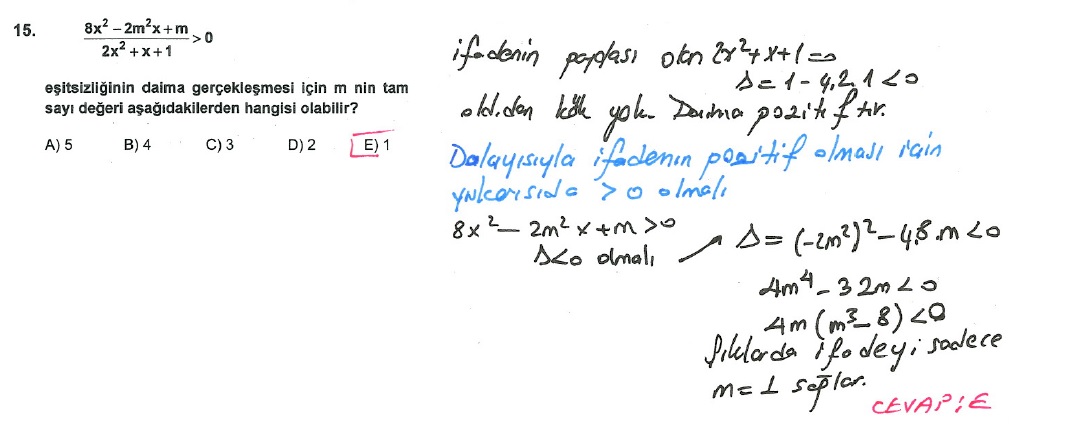 15. 8x² – 2m²x + m / 2x² + x + 1 > 0
eşitsizliğinin daima gerçekleşmesi için m nin tam
sayı değeri aşağıdakilerden hangisi olabilir?
A) 5 B) 4 C) 3 D) 2 E) 1
ifadenin paydası olan 2x²+x+1=0
Δ = 1 - 4.2.1 < 0
old.dan kök yok. Daima pozitiftir.
Dolayısıyla ifadenin pozitif olması için
yukarısıda > 0 olmalı
8x² - 2m²x + m > 0
Δ<0 olmalı
Δ = (-2m²)² - 4.8.m < 0
4m⁴ - 32m < 0
4m (m³ - 8) < 0
Şıklarda ifadeyi sadece
m = 1 sağlar.
CEVAP: E